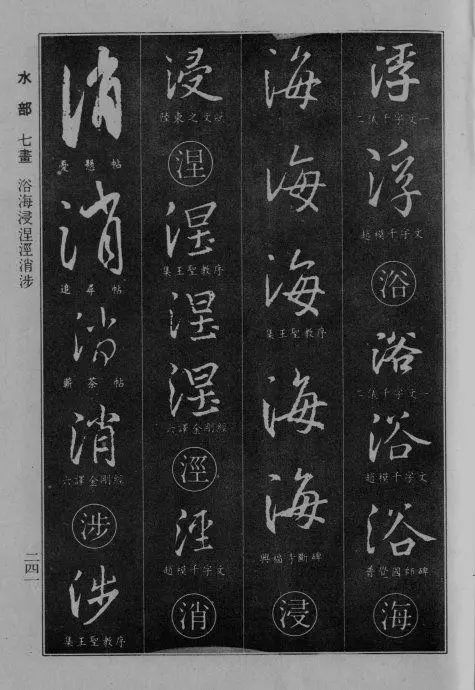 浮
浮
趙模千字文
浴
浴
浴
趙模千字文
浴
普覺國師碑
海
海
海
海
集王聖教序
海
海
興福寺斷碑
浸
浸
陸柬之文賦
涅
涅
集王聖教序
涅
涅
六譯金剛經
涇
涇
趙模千字文
消
消
憂懸帖
消
追尋帖
消
蘄茶帖
消
六譯金剛經
涉
涉
集王聖教序
水部 七畫 浴海浸涅涇消涉
二四一